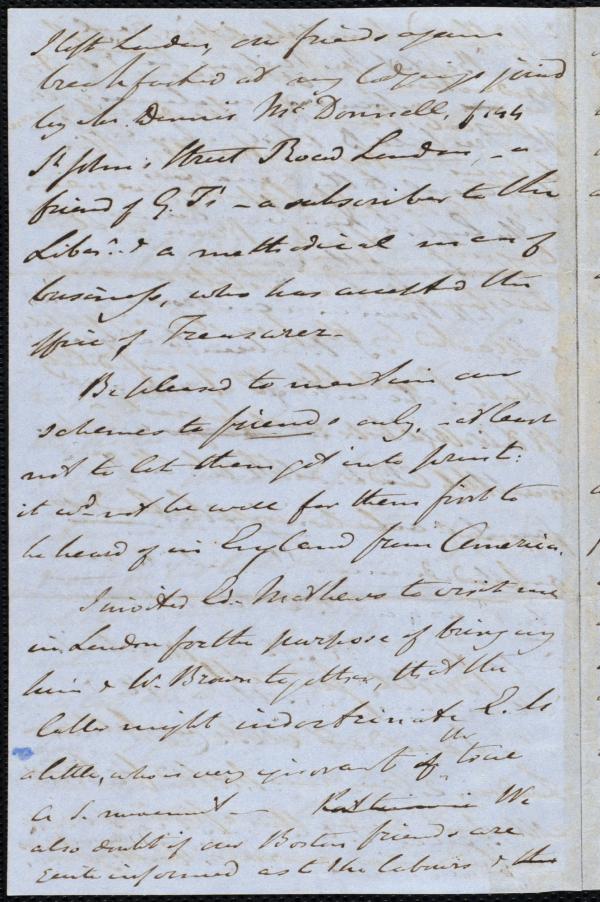 I left London, our friends again
breakfasted at my lodgings joined
by Mr. Dennis McDonnell, of 144
St John's Street Road London, - a
friend of G. T's - a subscriber to the
Liberr. & a methodical man of
business, who has accepted the
office of Treasurer -
Be pleased to mention our
schemes to friends only, - at least
not to let them get into print:
it wd. not be well for them first to
be heard of in England from America.
I invited Ed. Mathews to visit me
in London for the purpose of bringing
him & W. Brown together, that the
latter might indoctrinate E. M
a little, who is very ignorant of the true
A. S. movement - We
also doubt if our Boston friends are
quite informed as to the labours & the